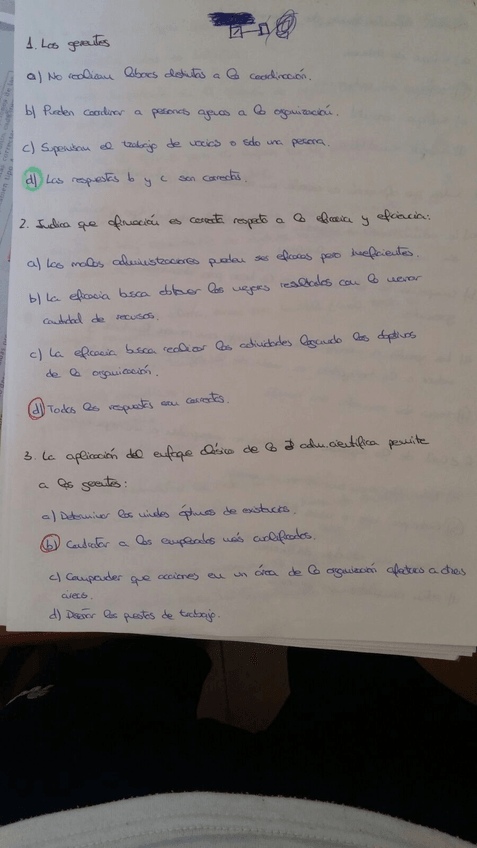 1. Los gerentes
a) No realizan labores distintas a la coordinación.
b) Pueden coordinar a personas ajenas a la organización.
c) Supervisan el trabajo de varias o solo una persona.
d) Las respuestas b y c son correctas.
2. Indica que afirmación es correcta respecto a la eficacia y eficiencia:
a) Los malos administradores pueden ser eficaces pero ineficientes.
b) La eficacia busca obtener los mejores resultados con la menor
cantidad de recursos.
c) La eficacia busca realizar las actividades logrando los objetivos
de la organización.
d) Todas las respuestas son correctas.
3. La aplicación del enfoque clásico de la adm. científica permite
a los gerentes:
a) Determinar los niveles óptimos de existencias.
b) Contratar a los empleados más cualificados.
c) Comprender que acciones en un área de la organización afectan a otras
areas.
d) Diseñar los puestos de trabajo.